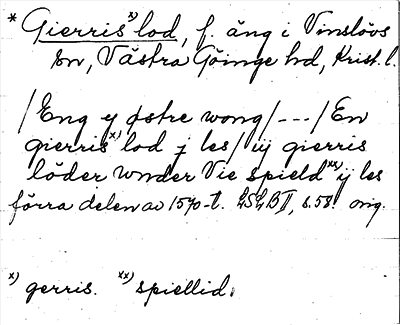 * Gierris x) lod, f. äng i Vinslövs
sn, Västra Göinge hd, Krist. l.
/Eng ej østre wong/---/En
gierris x) lod j les/ iij gierris
löder wnder Vie spield xx) ij les
förra delen av 1570-t. LSLB II, s. 58. orig.
x) gerris. xx) spiellid.